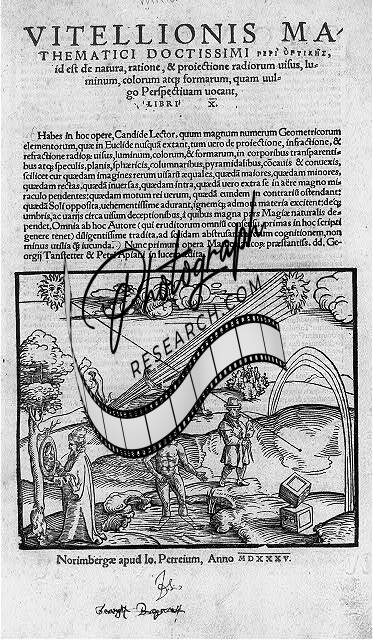 VITELLIONIS MA-
THEMATICI DOCTISSIMI ΠΕΡΙ ὈΠΤΙΚΗΣ,
id est de natura, ratione, & proiectione radiorum uisus, lu-
minum, colorum atq; formarum, quam uul-
go Perspectiuam uocant,
LIBRI X.
Habes in hoc opere, Candide Lector, quum magnum numerum Geometricorum
elementorum, quæ in Euclide nusquā extant, tum uero de proiectione, infractione, &
refractione radiorū uisus, luminum, colorum, & formarum, in corporibus transparenti-
bus atq; speculis, planis, sphæricis, columnaribus, pyramidalibus, cōcauis & conuexis,
scilicet cur quædam imagines rerum uisarū æquales, quædā maiores, quædam minores,
quædam rectas, quædā inuersas, quædam intra, quædā uero extra se in aëre magno mi-
raculo pendentes: quædam motum rei uerum, quædā eundem in contrariū ostendant:
quædā Soli opposita, uehementissime adurant, ignemq; admota materia excitent: deq;
umbris, ac uarijs circa uisum deceptionibus, à quibus magna pars Magiæ naturalis de-
pendet, Omnia ab hoc Autore (qui eruditorum omniū primas in hoc scripti
genere tenet) diligentissime tradita, ad solidam abstrusarum rerum cognitionem, non
minus utilia q̄ iucunda. Nunc primum opera Mathematicorū præstantiss. dd, Ge-
orgij Tanstetter & Petri Apiani in lucem ædita.
Photograph
RESEARCH.COM
Norimbergæ apud Io. Petreium, Anno MDXXXV.